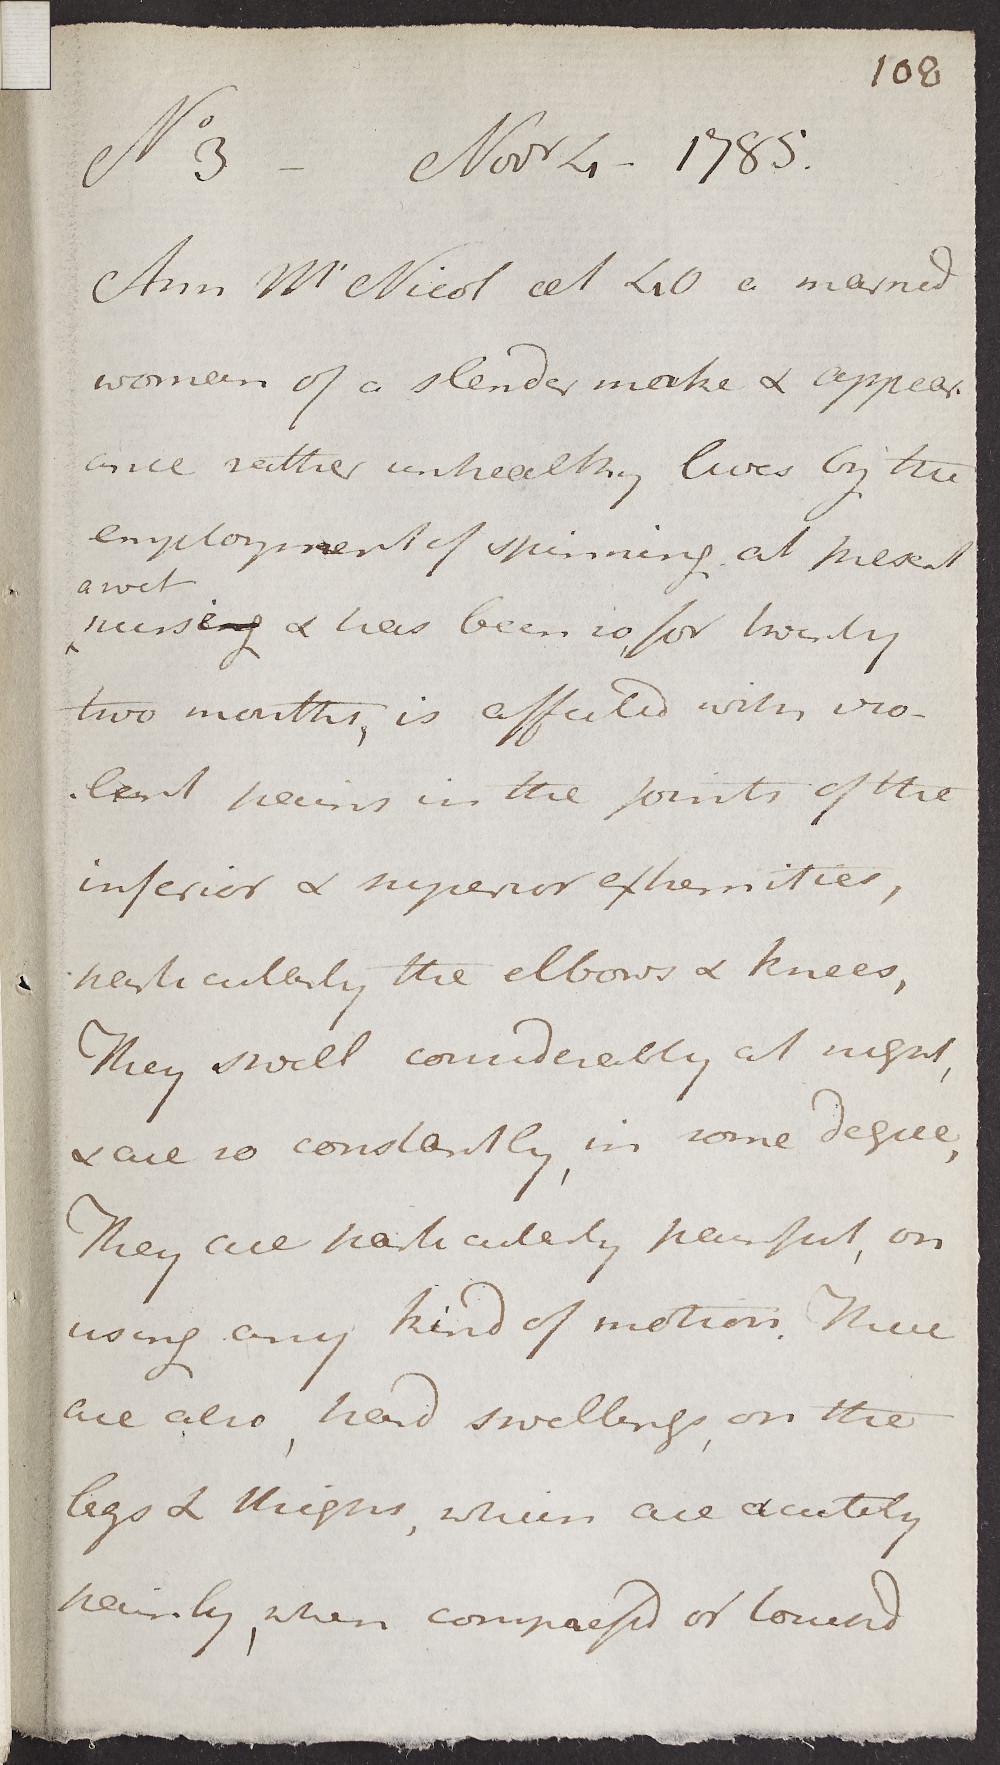 108
No 3 - Novr 4 - 1785.
Ann Mc Nicol aet 40 a married
woman of a slender make & appear-
ance rather unhealthy lives by the
employment of spinning at present
a wet
nursing & has been so, for twenty
two months, is affected with vio-
lent pains in the joints of the
inferior & superior extremities,
particularly the elbows & knees,
They swell considerably at night,
& are so constantly, in some degree,
They are particularly painful, on
using any kind of motion. There
are also, hard swellings, on the
legs & thighs, which are acutely
painly, when compressd or touchd